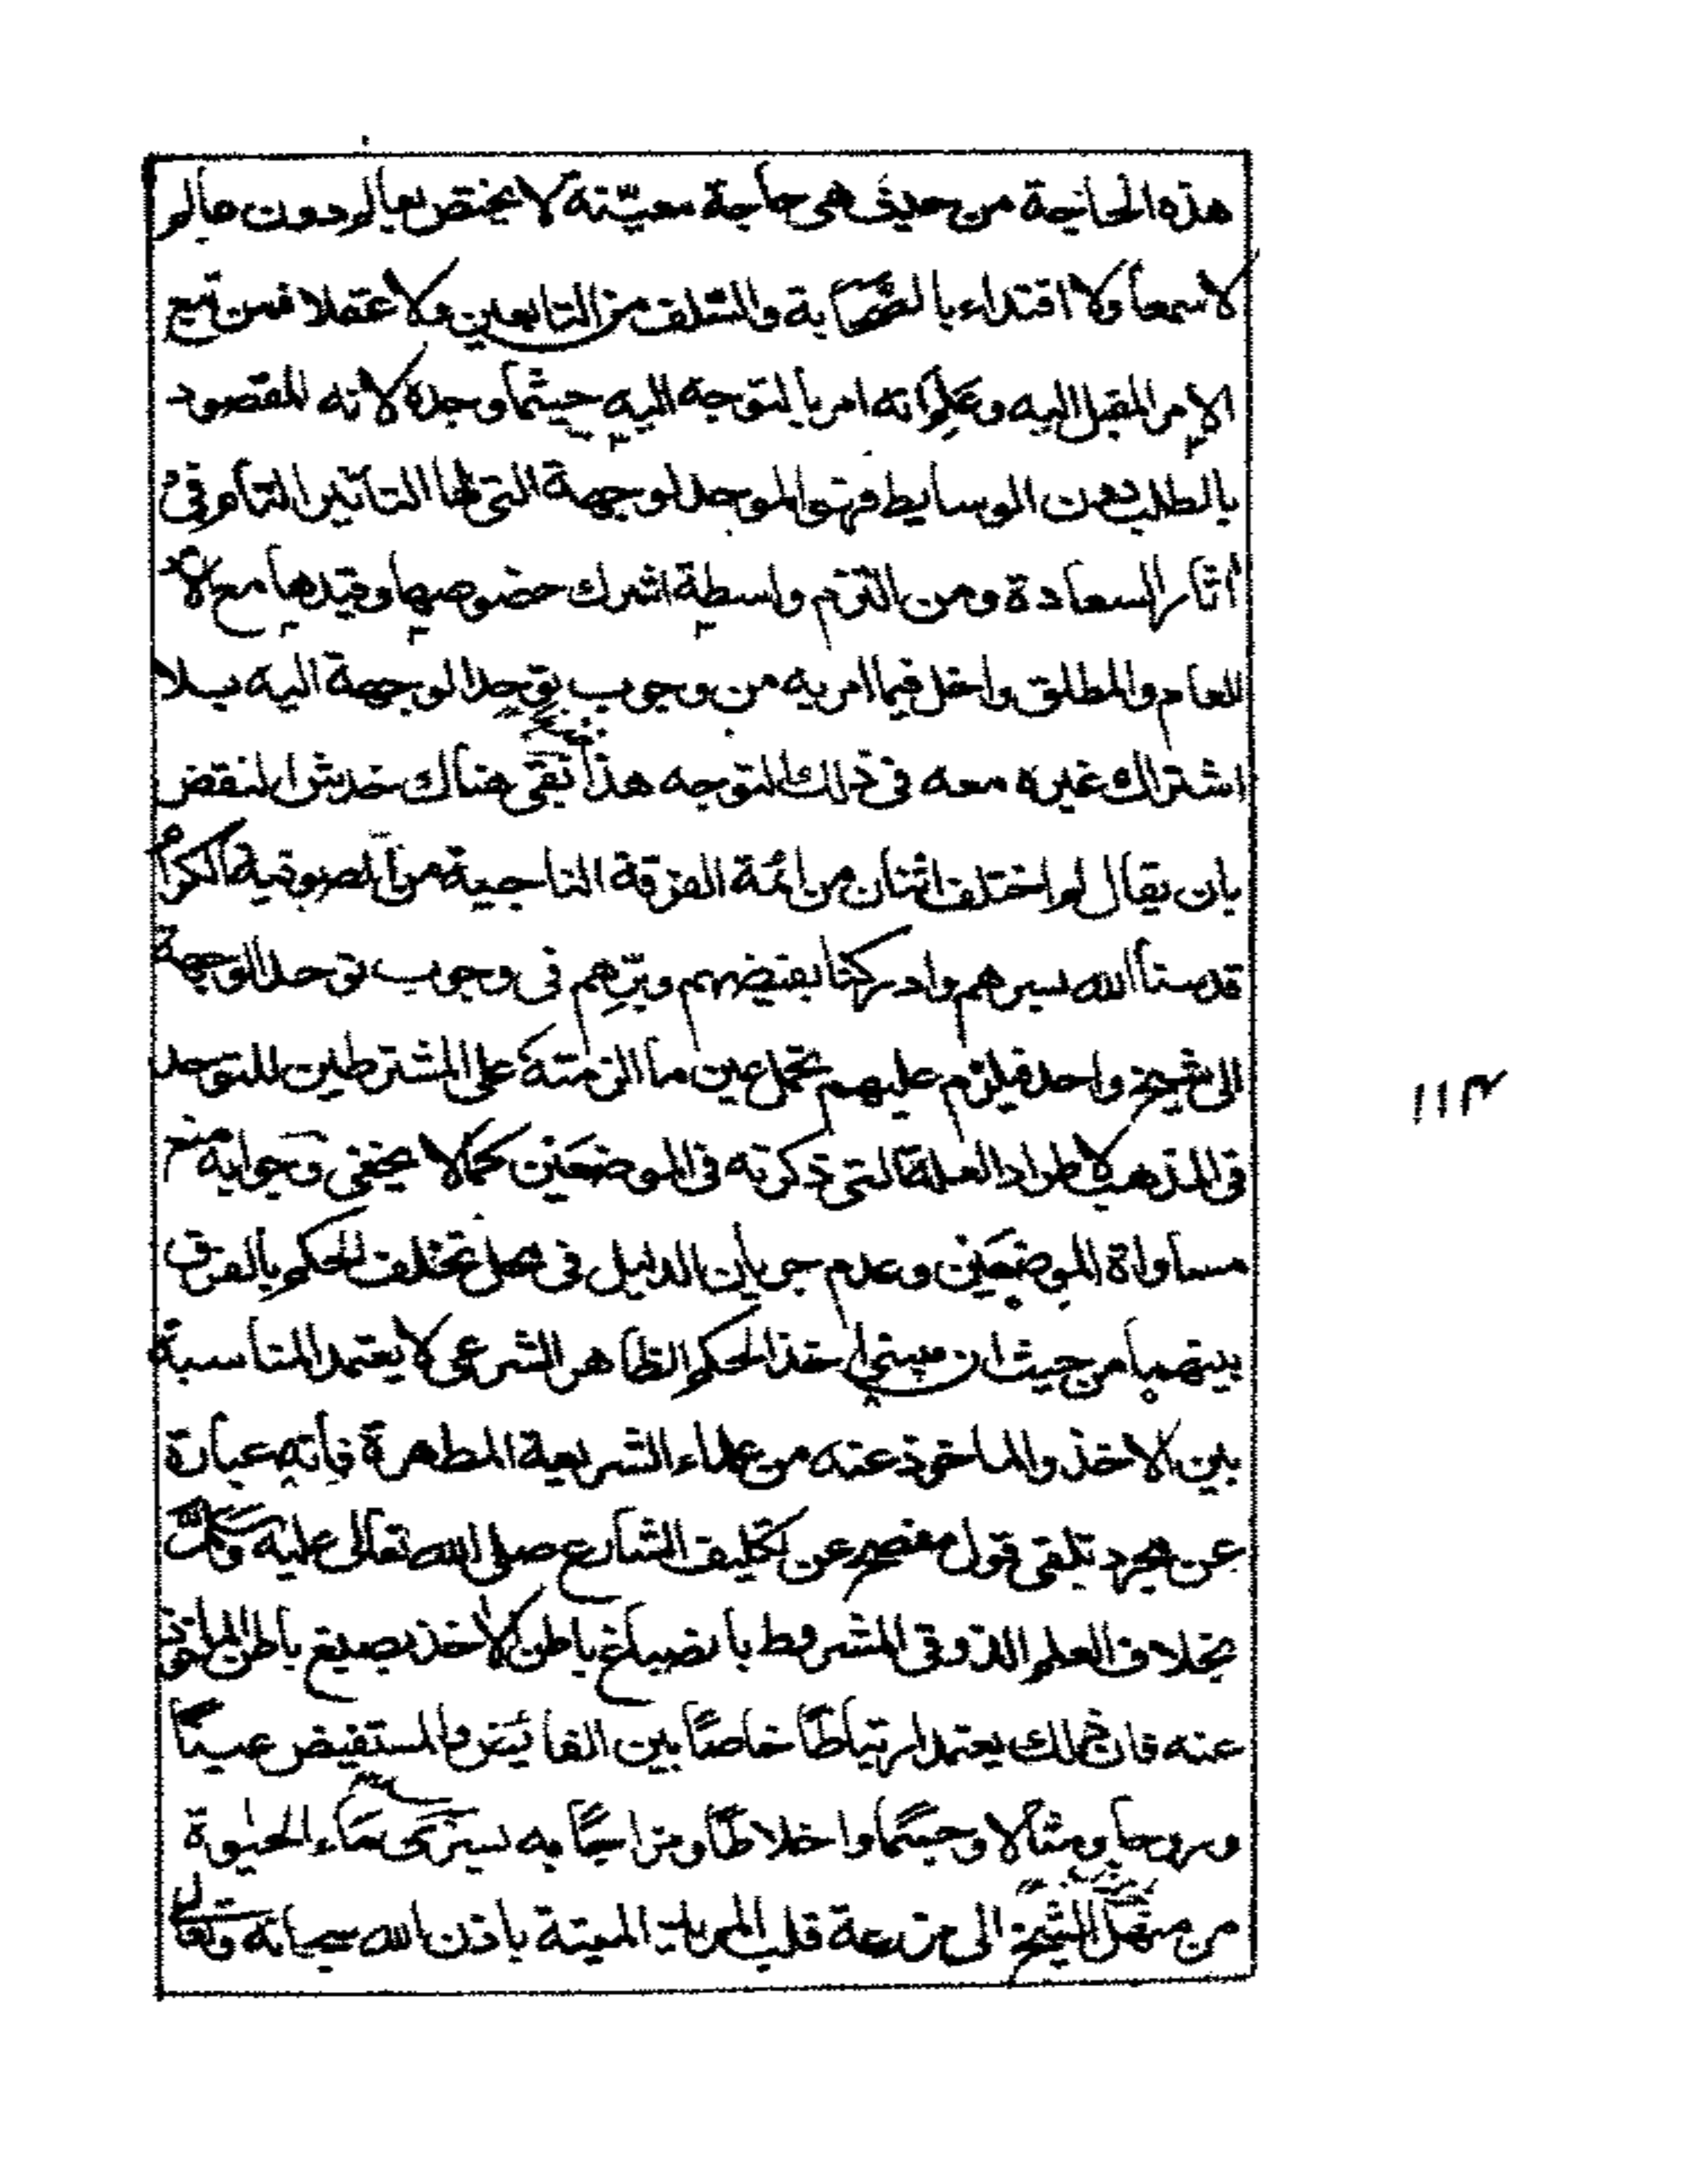 هذه الحاجة من حيث هى حاجة معيّنة لا يختص بعالم دون عالم
لا سمعا ولا اقتداء بالصحابة والسلف من التابعين ولا عقلا فمن تبع
الامر المقبل اليه وعلم انه امر بالتوجه اليه حيثما وجده لانه المقصود
بالطلب دون الوسايط فهو الموحد لوجهة التى لها التاثير التام فى
آثار السعادة ومن التزم واسطة اشرك خصوصها وقيدها مع الامر
العام والمطلق واخل فيما امر به من وجوب توحد الوجهة اليه بلا
اشتراك غيره معه فى ذلك التوجه هذا بقى هناك خدش النقض
بان يقال لو اختلف اثنان من ائمة الفرقة الناجية من الصوفية الكرام
قدسنا الله بسرهم وادركنا بفيضهم وبرّهم فى وجوب توحد الوجهة
الى شيخ واحد فيلزم عليهم تحمل عين ما الزمته على المشترطين للتوحد
فى المذهب لاطراد العلة التى ذكرته فى الموضعين كما لا يخفى وجوابه منع
مساواة الموضعين وعدم جريان الدليل فى محل تخلف الحكم بالفرق
بينهما من حيث ان مبنى اخذ الحكم الظاهر الشرعى لا يعتمد المناسبة
بين الاخذ والماخوذ عنه من علماء الشريعة المطهرة فانه عبارة
عن مجرد تلقى قول مفصح عن تكليف الشارع صلى الله تعالى عليه وسلم
بخلاف العلم الذوقى المشروط بانصباغ باطن الاخذ بصبغ باطن الماخوذ
عنه فان ذلك يعتمد ارتباطا خاصا بين الفائض والمستفيض عينًا
وروحا ومثالا وجسما واخلاطا ومزاجا به يسرى ماء الحيوة
من منهل الشيخ الى مزرعة قلب المريد الميتة باذن الله سبحانه وتعالى
١١٣